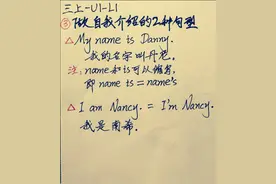 三上-U1-L1
③ 做自我介绍的2种句型
△ My name is Danny.
我的名字叫丹尼.
注: name和is可以缩写,
即 name is = name's
△ I am Nancy. = I'm Nancy.
我是南希.